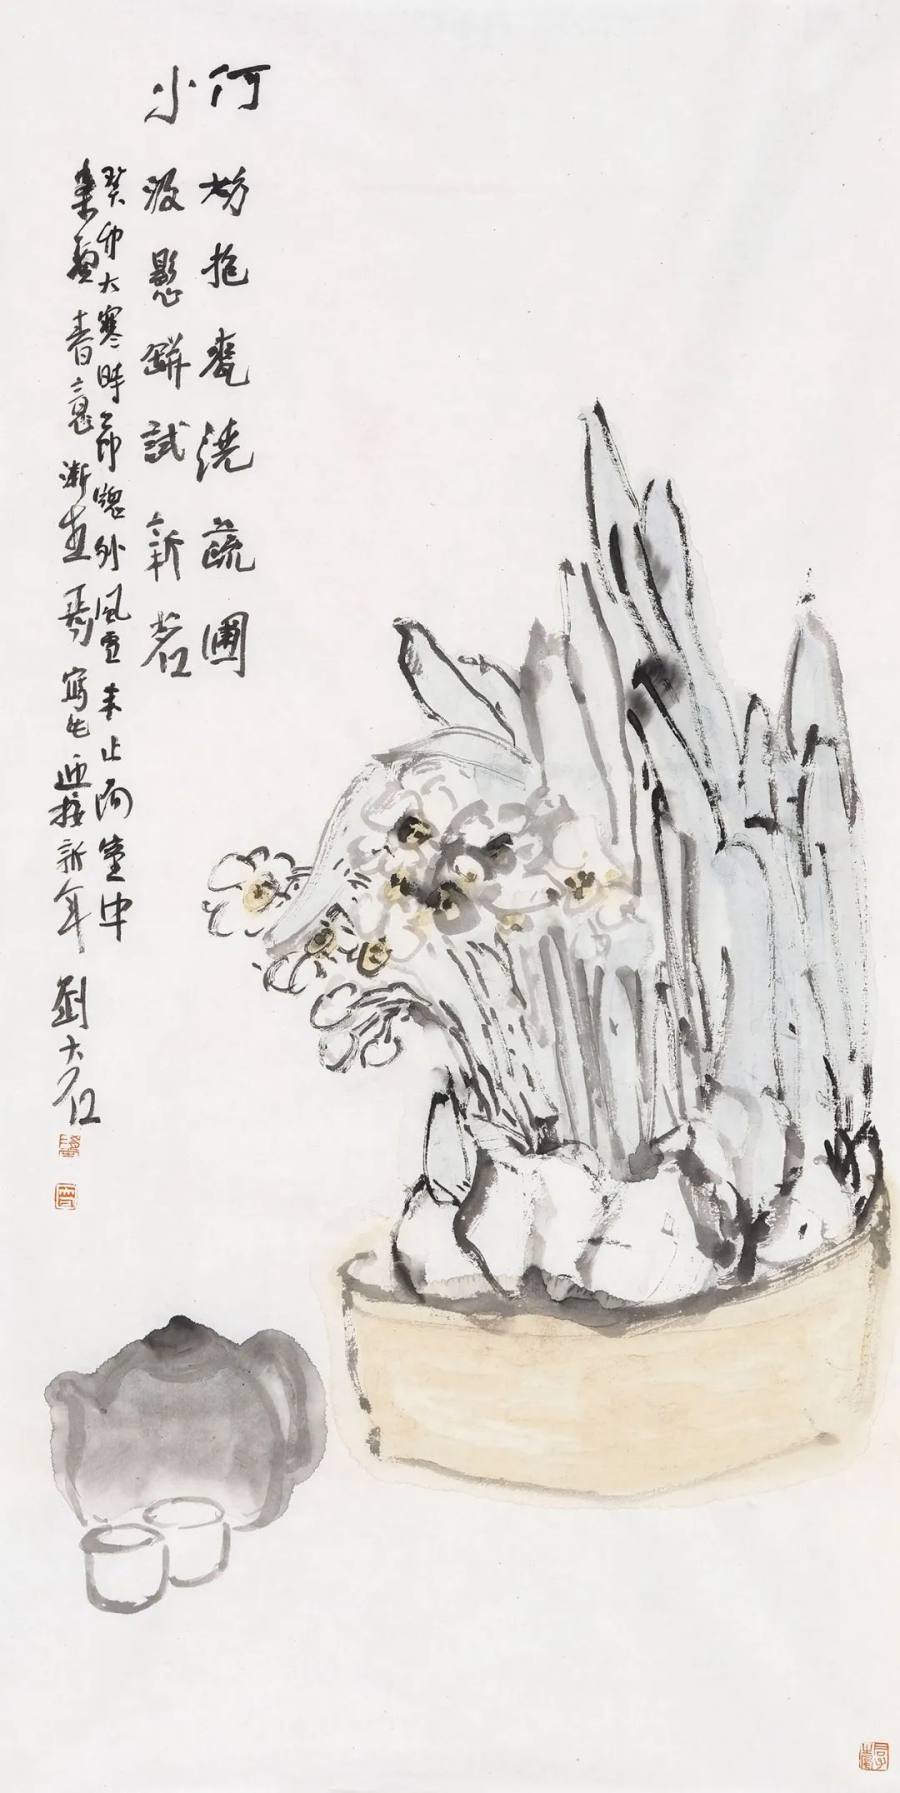 何妨抱甕澆蔬圃
小汲懸缾試新茗
癸卯大寒時節窗外風雪未止陋室中
案頭春意漸 寫此迎接新年 劉大